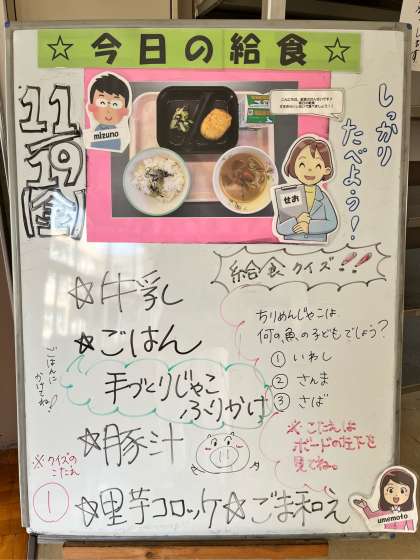 ☆今日の給食☆
11/19(金)
mizuno
せお
しっかり
たべよう！
給食クイズ!!
☆牛乳
☆ごはん
ごはんに
かけてね！
手づくりじゃこ
ふりかけ
☆豚汁
☆里芋コロッケ☆ごま和え
ちりめんじゃこは
何の魚の子どもでしょう？
① いわし
② さんま
③ さば
※こたえは
ボードの左下を
見てね。
※クイズの
こたえ
①
umemoto